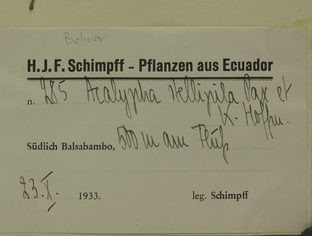 Bolivar
H.J.F. Schimpff - Pflanzen aus Ecuador
n. 285 Acalypha Pax et
K. Hoffm.
Südlich Balsabambo, 500 m am Fluß
23.X. 1933. leg. Schimpff